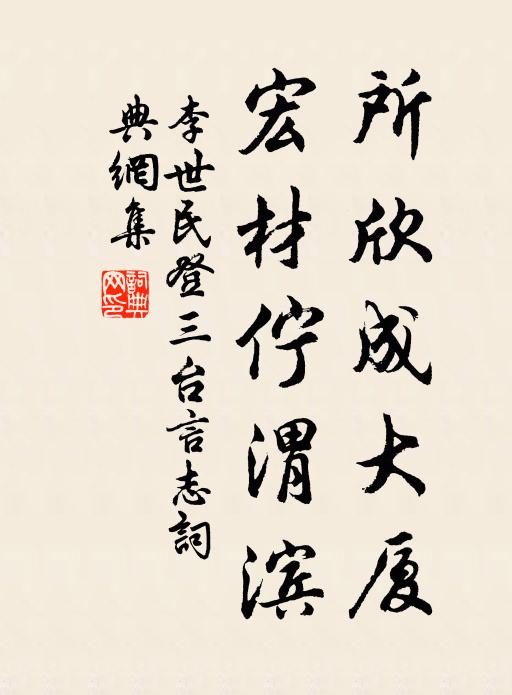 所欣成大厦
宏材伫渭滨
李世民登三台言志詞
典網集
詞典
网印